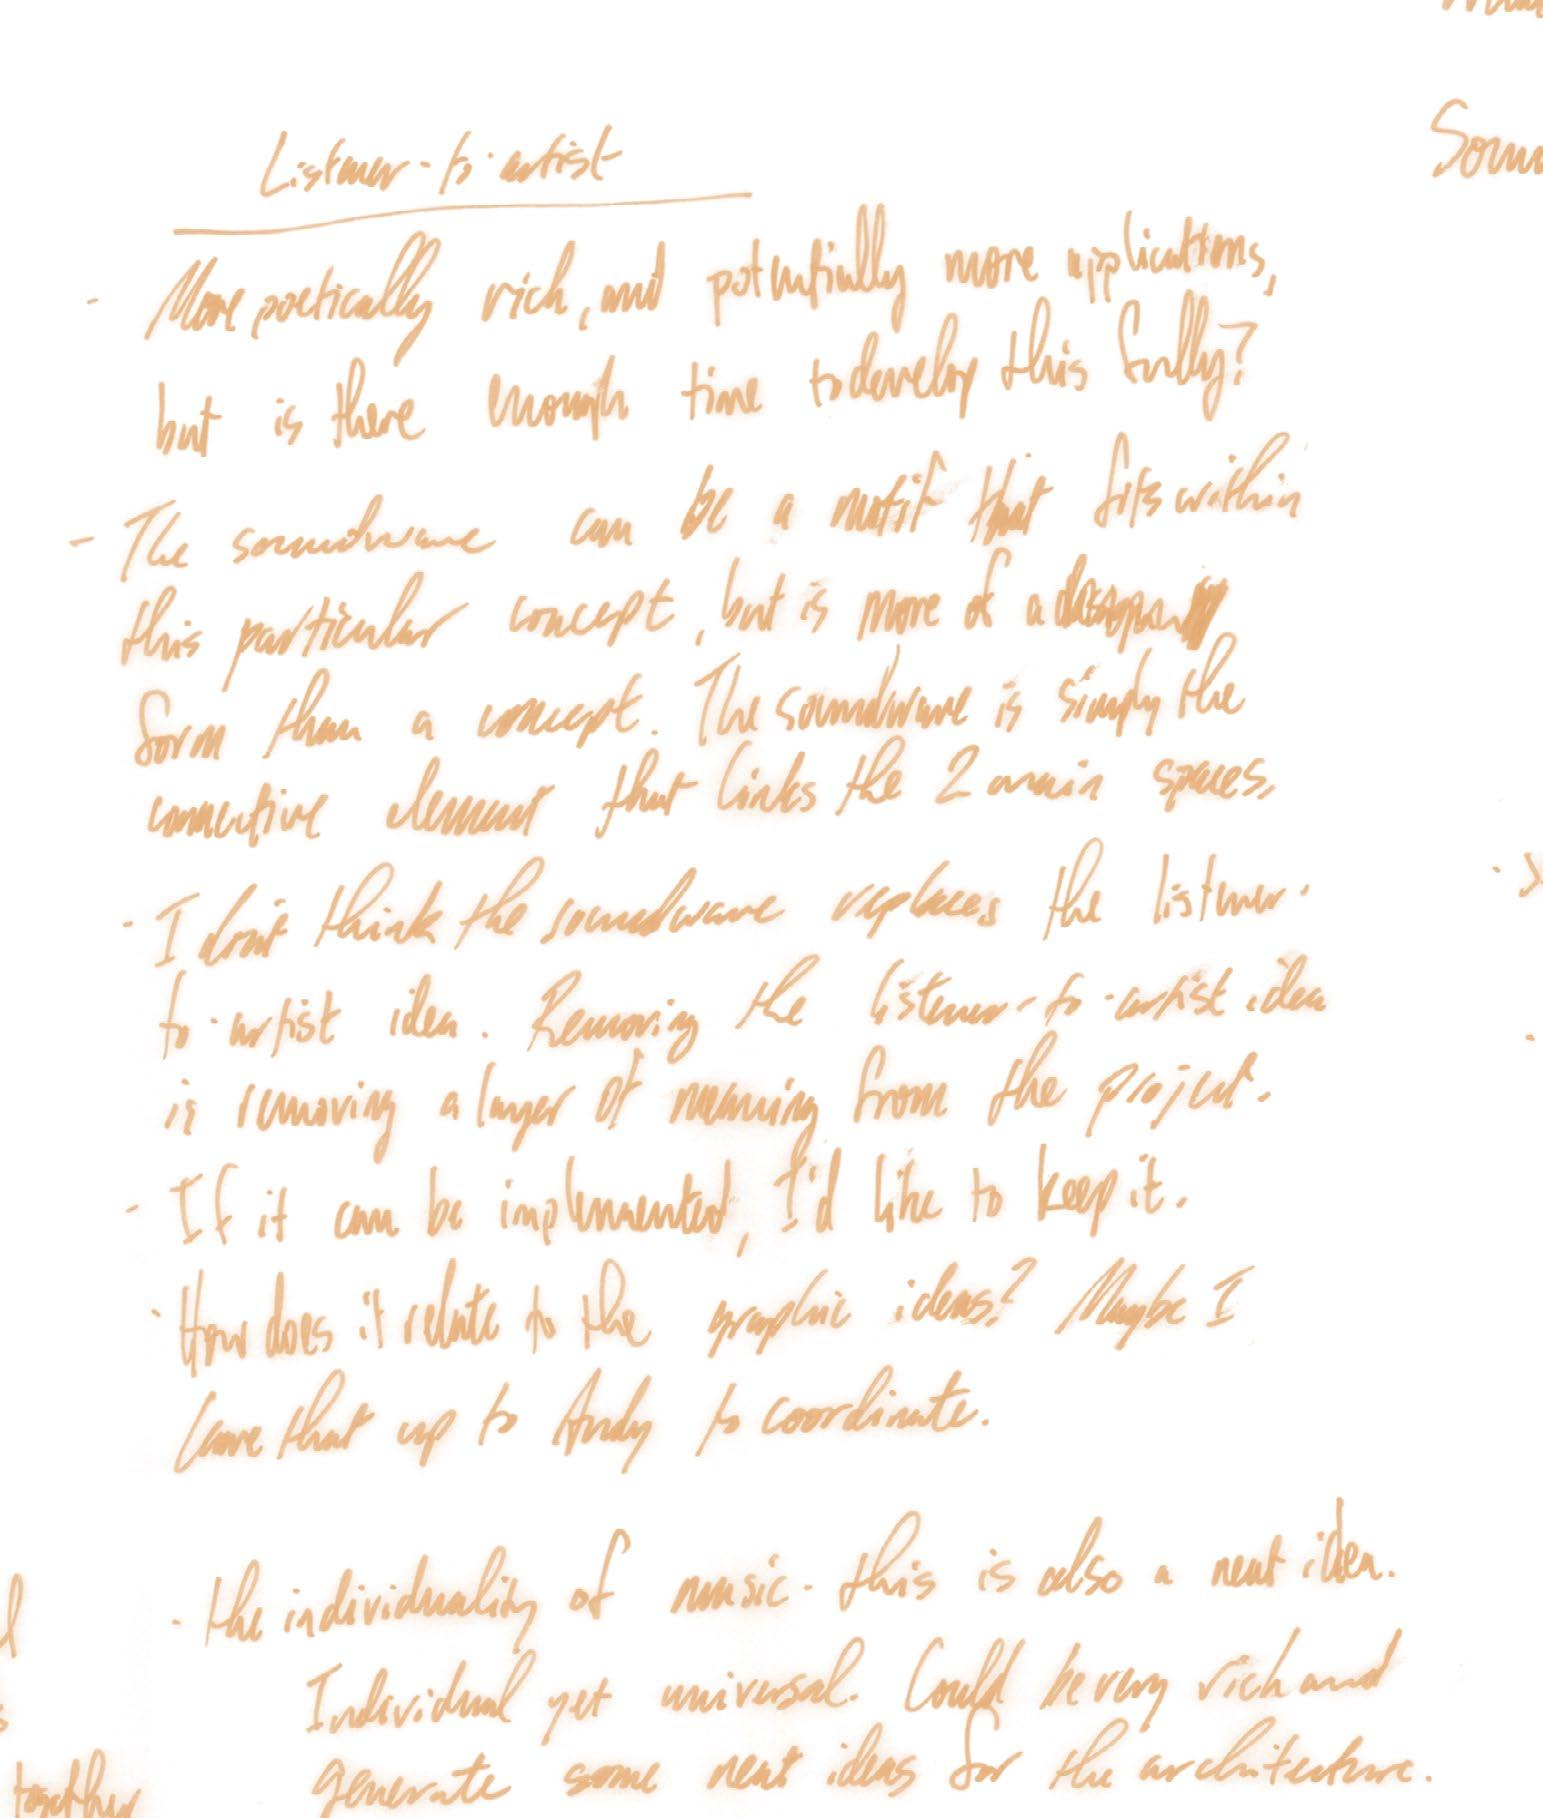 Listener-to-artist
- More poetically rich, and potentially more applications,
but is there enough time to develop this fully?
- The soundwave can be a motif that fits within
this particular concept, but is more of a
form than a concept. The soundwave is simply the
connective element that links the 2 main spaces.
- I don't think the soundwave replaces the listener-
to-artist idea. Removing the listener-to-artist idea
is removing a layer of meaning from the project.
- If it can be implemented, I'd like to keep it.
- How does it relate to the graphic ideas? Maybe I
leave that up to Andy to coordinate.
- the individuality of music - this is also a neat idea.
Individual yet universal. Could be very rich and
generate some neat ideas for the architecture.
together